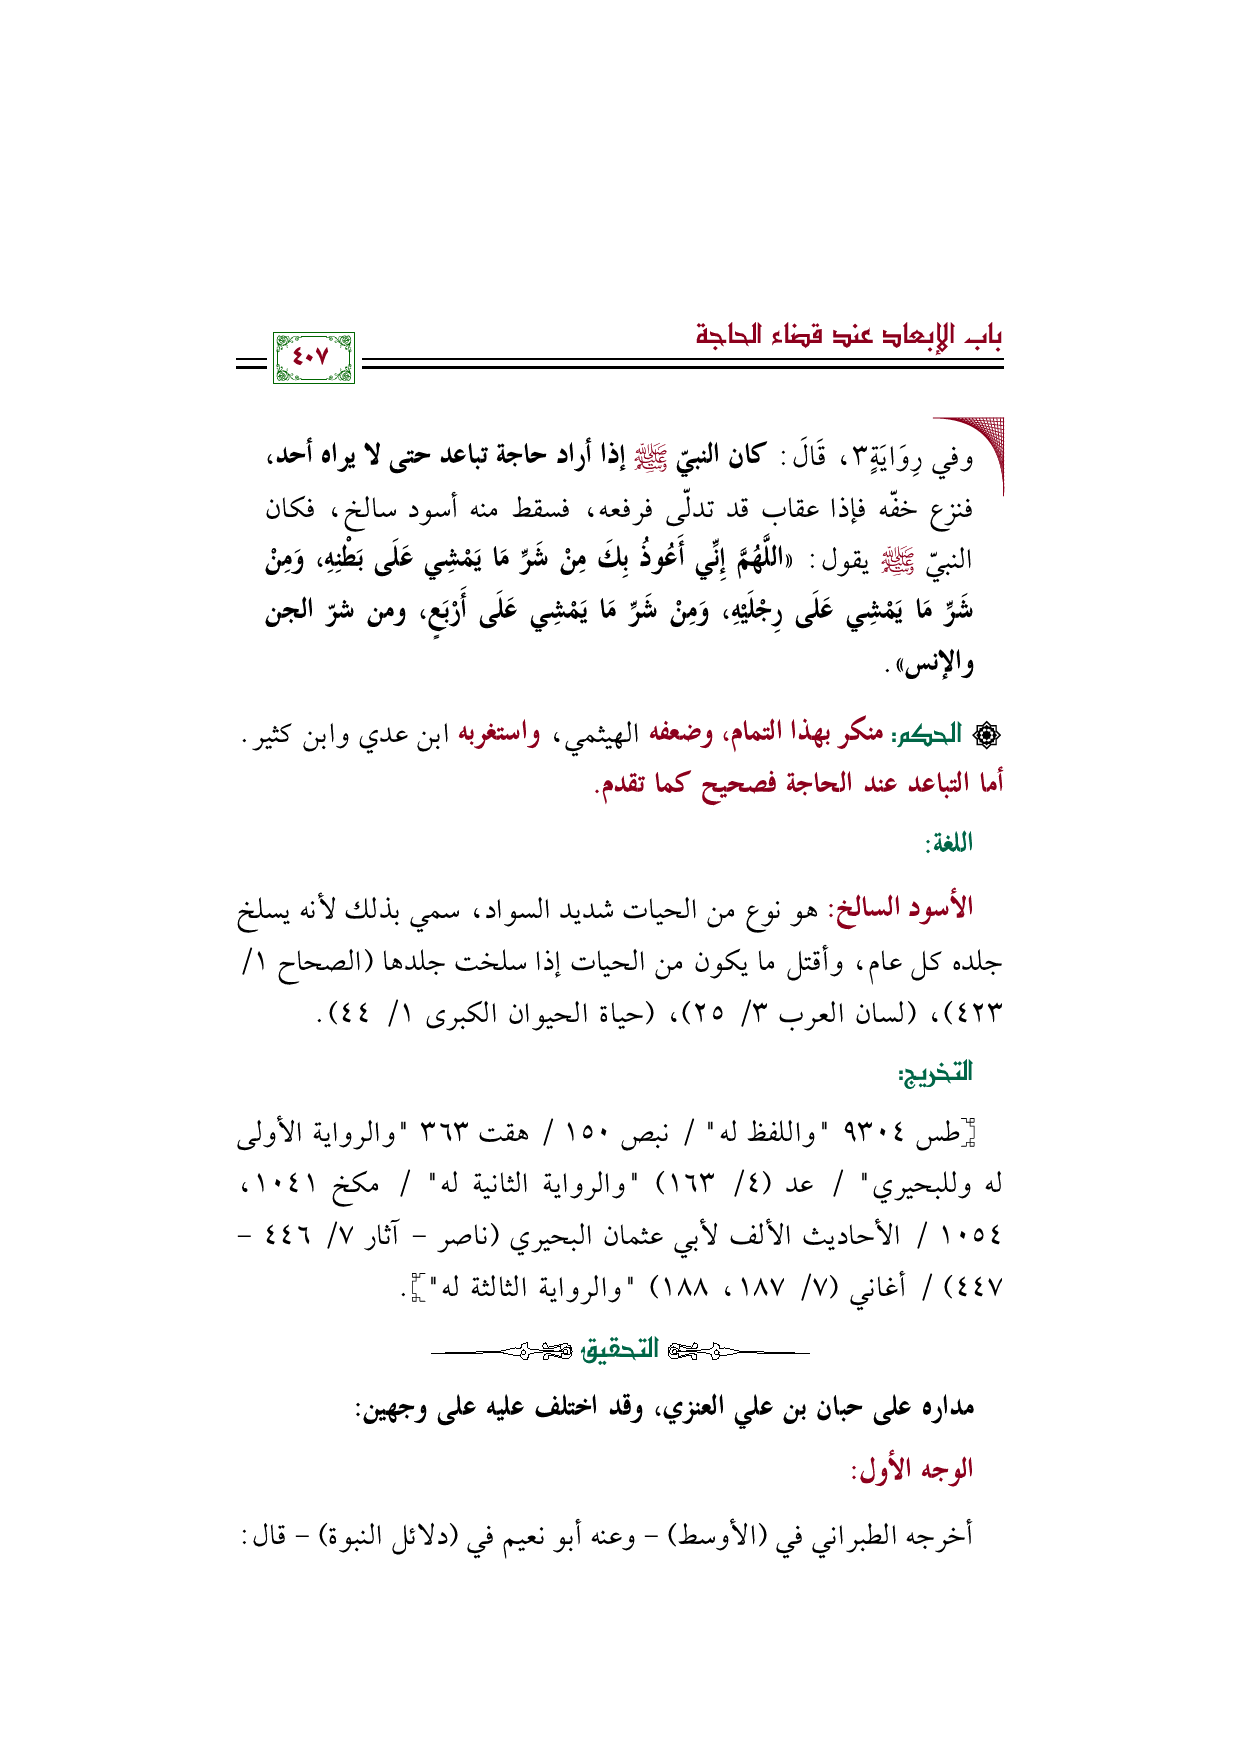 باب الإبعاد عند قضاء الحاجة
٤٠٧
وفي رِوَايَةٍ٣، قَالَ: كان النبيّ ﷺ إذا أراد حاجة تباعد حتى لا يراه أحد،
فنزع خفّه فإذا عقاب قد تدلّى فرفعه، فسقط منه أسود سالخ، فكان
النبيّ ﷺ يقول: «اللَّهُمَّ إِنِّي أَعُوذُ بِكَ مِنْ شَرِّ مَا يَمْشِي عَلَى بَطْنِهِ، وَمِنْ
شَرِّ مَا يَمْشِي عَلَى رِجْلَيْهِ، وَمِنْ شَرِّ مَا يَمْشِي عَلَى أَرْبَعٍ، ومن شرّ الجن
والإنس».
الحكم: منكر بهذا التمام، وضعفه الهيثمي، واستغربه ابن عدي وابن كثير.
أما التباعد عند الحاجة فصحيح كما تقدم.
اللغة:
الأسود السالخ: هو نوع من الحيات شديد السواد، سمي بذلك لأنه يسلخ
جلده كل عام، وأقتل ما يكون من الحيات إذا سلخت جلدها (الصحاح ١/
٤٢٣)، (لسان العرب ٣/ ٢٥)، (حياة الحيوان الكبرى ١/ ٤٤).
التخريج:
[طس ٩٣٠٤ "واللفظ له" / نبص ١٥٠ / هقت ٣٦٣ "والرواية الأولى
له وللبحيري" / عد (٤/ ١٦٣) "والرواية الثانية له" / مكخ ١٠٤١،
١٠٥٤ / الأحاديث الألف لأبي عثمان البحيري (ناصر - آثار ٧/ ٤٤٦ -
٤٤٧) / أغاني (٧/ ١٨٧، ١٨٨) "والرواية الثالثة له"].
التحقيق
مداره على حبان بن علي العنزي، وقد اختلف عليه على وجهين:
الوجه الأول:
أخرجه الطبراني في (الأوسط) - وعنه أبو نعيم في (دلائل النبوة) - قال: